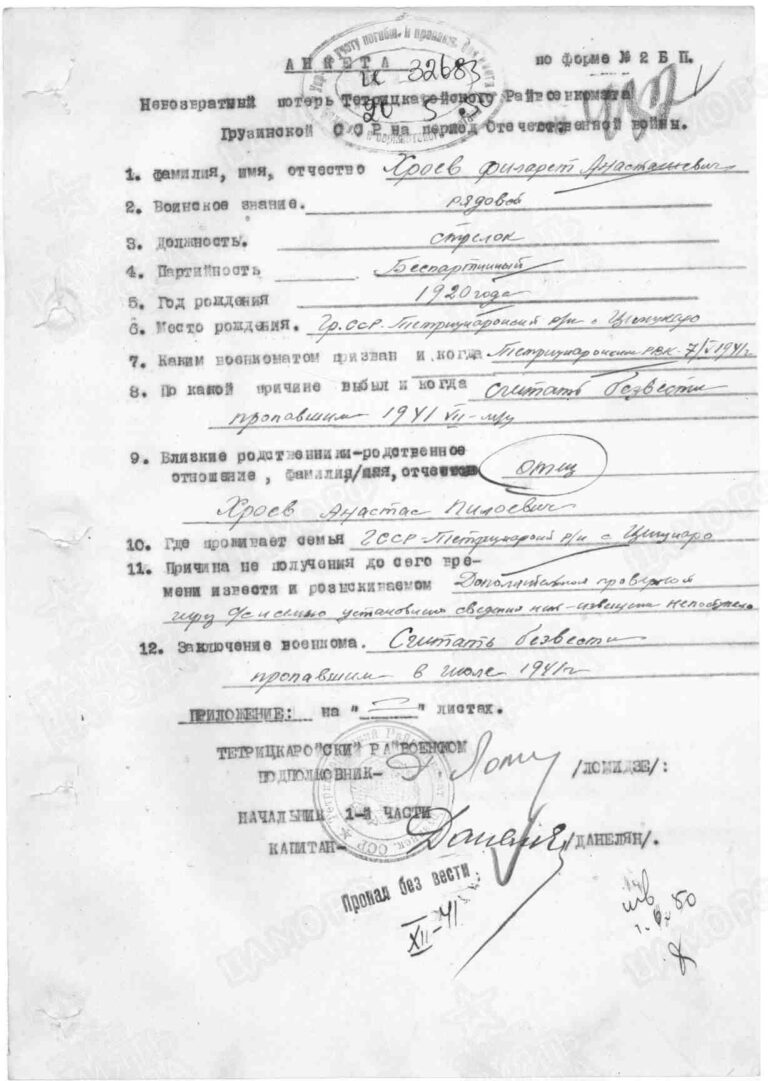 АНКЕТА по форме № 2 Б П.
вх 32683
20 5 50
Невозвратный потерь Тетрицкаройского Райвоенкомата
Грузинской С С Р на период Отечественной войны.
1. фамилия, имя, отчество Хроев Филарет Анастасиевич
2. Воинское звание. рядовой
3. Должность. стрелок
4. Партийность Беспартийный
5. Год рождения 1920 года
6. Место рождения. Гр.ССР. Тетрицкаройский р/н с
7. Каким военкоматом призван и когда Тетрицкаройским РВК 1941г
8. По какой причине выбыл и когда Считать безвести
пропавшим 1941 VII-м-цу
9. Близкие родственники-родственное отец
отношение, фамилия, имя, отчество
Хроев Анастас
10. Где проживает семья ГССР Тетрицкаройский р/н с
11. Причина не получения до сего вре-
мени извести и розыскиваемом Дополнительной проверкой
через установлено сведения нет-извещения не поступало
12. Заключение военкома. Считать безвести
пропавшим в июле 1941г
ПРИЛОЖЕНИЕ: на " " листах.
ТЕТРИЦКАРОЙСКИЙ РАЙВОЕНКОМ
ПОДПОЛКОВНИК- /ЛОМИДЗЕ/:
НАЧАЛЬНИК 1-й ЧАСТИ
КАПИТАН- Данелян /ДАНЕЛЯН/.
Пропал без вести
XII-41